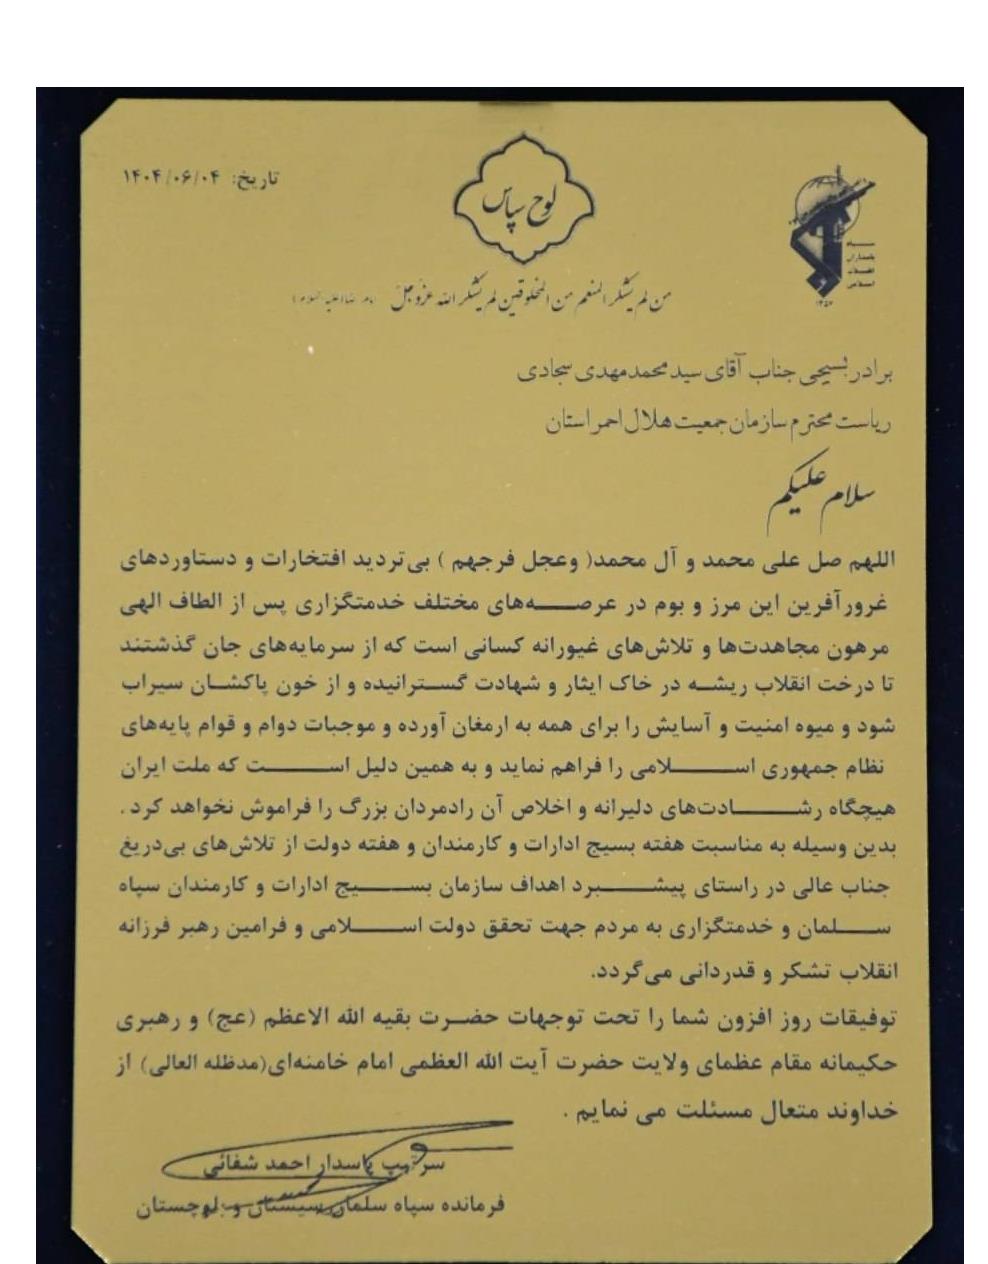 تاریخ: ۱۴۰۴/۰۶/۰۴
لوح سپاس
سپاه
پاسداران
انقلاب
اسلامی
من لم یشکر المنعم من المخلوقین لم یشکر الله عزوجل امام رضا (علیه السلام)
برادر بسیجی جناب آقای سید محمدمهدی سجادی
ریاست محترم سازمان جمعیت هلال احمر استان
سلام علیکم
اللهم صل علی محمد و آل محمد( وعجل فرجهم ) بی‌تردید افتخارات و دستاوردهای
غرورآفرین این مرز و بوم در عرصه‌های مختلف خدمتگزاری پس از الطاف الهی
مرهون مجاهدت‌ها و تلاش‌های غیورانه کسانی است که از سرمایه‌های جان گذشتند
تا درخت انقلاب ریشه در خاک ایثار و شهادت گسترانیده و از خون پاکشان سیراب
شود و میوه امنیت و آسایش را برای همه به ارمغان آورده و موجبات دوام و قوام پایه‌های
نظام جمهوری اسلامی را فراهم نماید و به همین دلیل است که ملت ایران
هیچگاه رشادت‌های دلیرانه و اخلاص آن رادمردان بزرگ را فراموش نخواهد کرد .
بدین وسیله به مناسبت هفته بسیج ادارات و کارمندان و هفته دولت از تلاش‌های بی‌دریغ
جناب عالی در راستای پیشبرد اهداف سازمان بسیج ادارات و کارمندان سپاه
سلمان و خدمتگزاری به مردم جهت تحقق دولت اسلامی و فرامین رهبر فرزانه
انقلاب تشکر و قدردانی می‌گردد.
توفیقات روز افزون شما را تحت توجهات حضرت بقیه الله الاعظم (عج) و رهبری
حکیمانه مقام عظمای ولایت حضرت آیت الله العظمی امام خامنه‌ای(مدظله العالی) از
خداوند متعال مسئلت می نمایم .
سرتیپ پاسدار احمد شفائی
فرمانده سپاه سلمان سیستان و بلوچستان